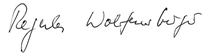 Regula Wolfensberger